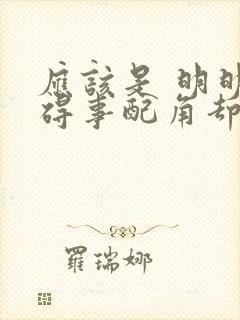 應該是 明明
碍事配角却
羅瑞娜